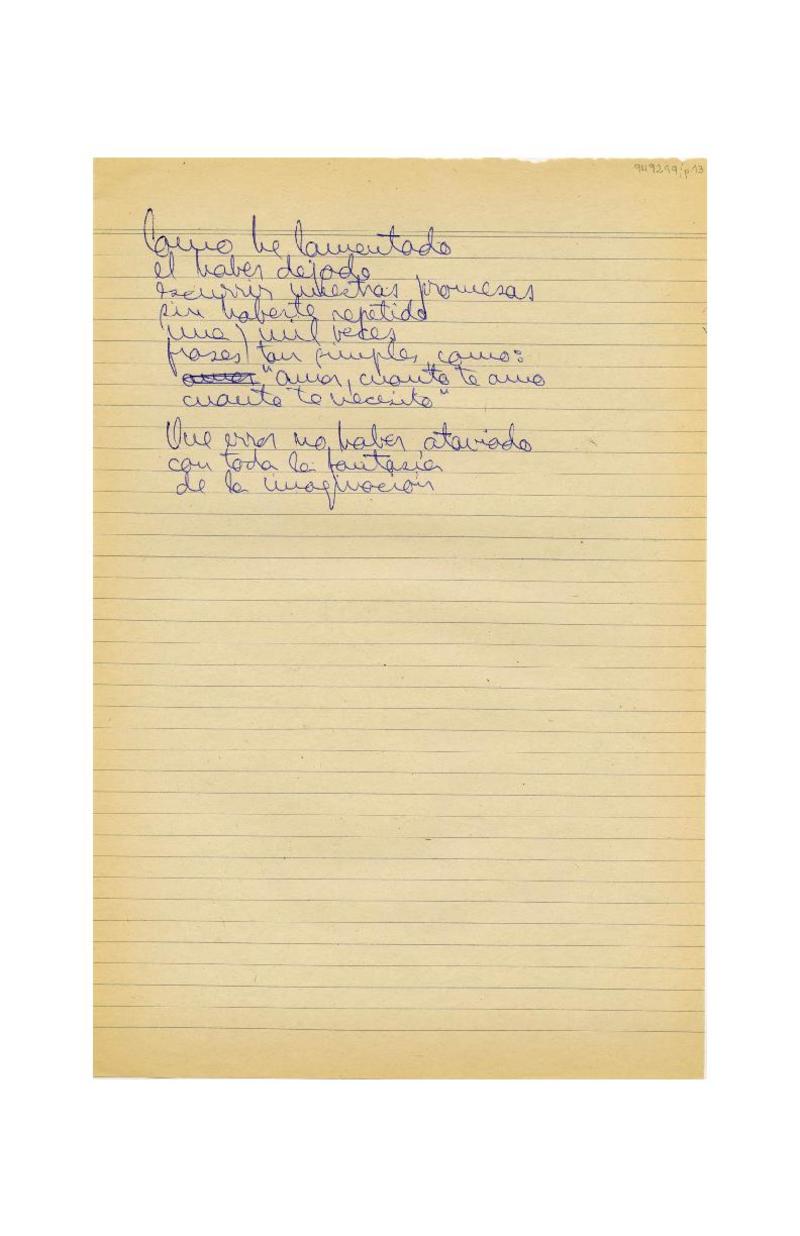 949219; p 13
Como he lamentado
el haber dejado
escurrir nuestras promesas
sin haberte repetido
una y mil veces
frases tan simples como:
amor "amor, cuanto te amo
cuanto te necesito"
Que error no haber ataviado
con toda la fantasía
de la imaginación